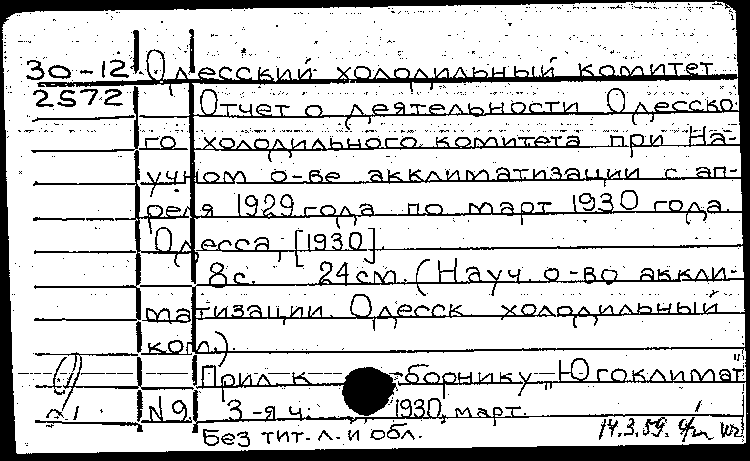 30-12 Одесский холодильный комитет
2572 Отчет о деятельности Одесско
го холодильного комитета при На-
учном о-ве акклиматизации с ап-
реля 1929 года по март 1930 года.
Одесса, [1930].
8 с. 24 см. (Науч. о-во аккли-
матизации. Одесск холодильный
ком.)
Прил. к сборнику „Югоклимат"
№ 9 3-я ч. 1930, март.
Без тит. л. и обл. 14.3.59.